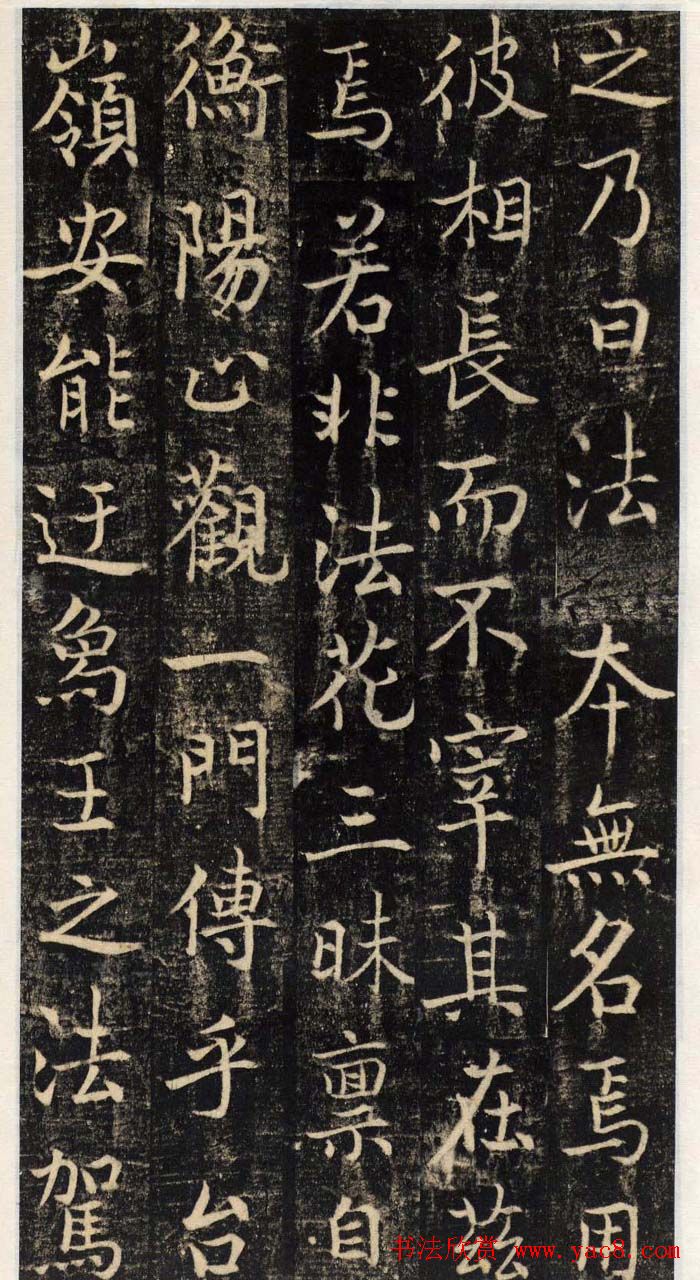 之乃曰法本無名焉用
彼相長而不宰其在茲
焉若非法花三昧禀自
衡陽止觀一門傳乎台
嶺安能迂象王之法駕
书法欣赏 www.yac8.com